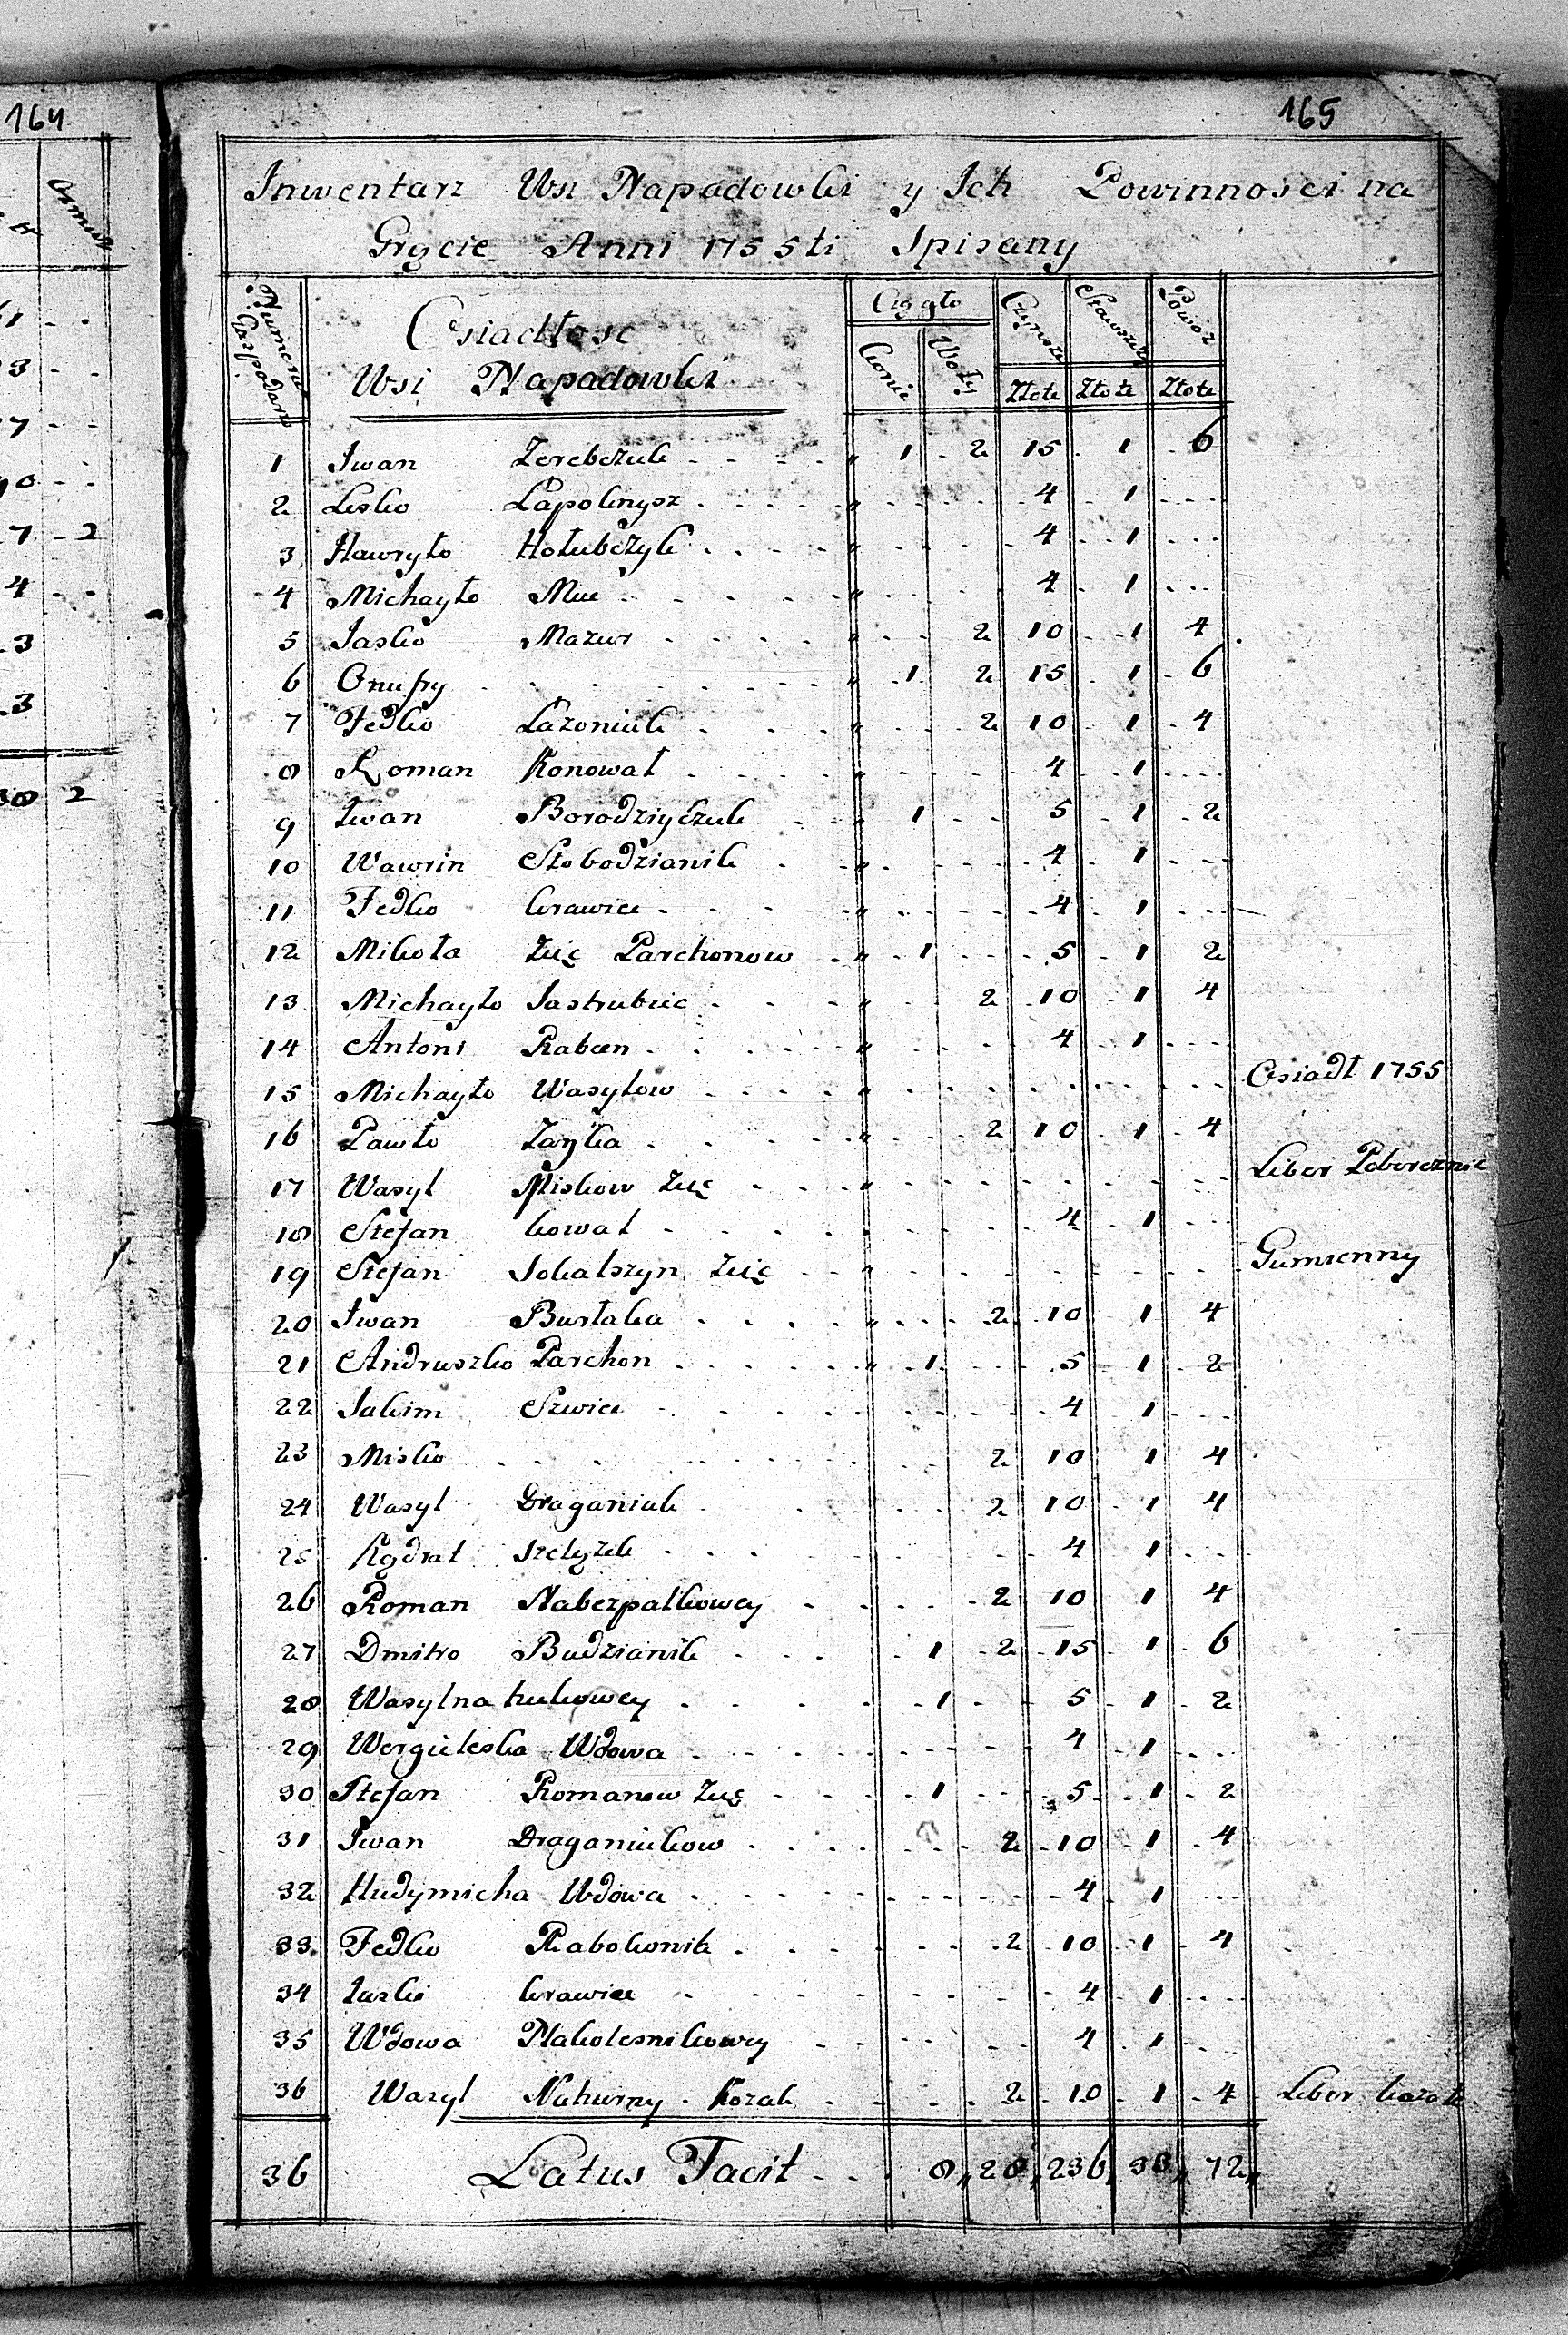 164
165
Inwentarz Wsi Napadowki y Ich Powinnosci na
Grącie Anni 1755ti Spisany
Numerus Gazpodarz
Osiadłosc
Wsi Napadowki
Ciągło
Konie Woły
Czynsz
Złote
Złote
Złote
1 Iwan Zerebczuk 1 2 15 1 6
2 Lesko Łapoknysz 4 1
3 Hawryło Hołubczyk 4 1
4 Michayło 4 1
5 Jasko Mazur 2 10 1 4
6 Onufry 1 2 15 1 6
7 Fedko Łazoniuk 2 10 1 4
8 Roman Konował 4 1
9 Iwan Borodziyczuk 1 5 1 2
10 Wawrin Słobodzianik 4 1
11 Fedko Krawiec 4 1
12 Mikoła Zięć Parchonow 1 5 1 2
13 Michayło Jastrubiec 2 10 1 4
14 Antoni Raban 4 1
15 Michayło Wasylow Osiadł 1755
16 Pawło Zayka 2 10 1 4
17 Wasyl Miskow Zięć Liber Pobereznic
18 Stefan Kowal 4 1
19 Stefan Sokalszyn Zięć Gumienny
20 Iwan Burłaka 2 10 1 4
21 Andruszko Parchon 1 5 1 2
22 Jakim Szwiec 4 1
23 Misko 2 10 1 4
24 Wasyl Draganiuk 2 10 1 4
25 Kądrat 4 1
26 Roman Naberpalkowcy 2 10 1 4
27 Dmitro Budzianik 1 2 15 1 6
28 Wasyl na hukowcy 1 5 1 2
29 Wergieleska Wdowa 4 1
30 Stefan Romanow Zięć 1 5 1 2
31 Iwan Draganiukow 2 10 1 4
32 Hudymicha Wdowa 4 1
33 Fedko Rabokonik 2 10 1 4
34 Krawiec 4 1
35 Wdowa Nakolesnikowcy 4 1
36 Wasyl Nahurny Kozak 2 10 1 4 Liber Kozak
36 Latus Facit 8 28 236 72